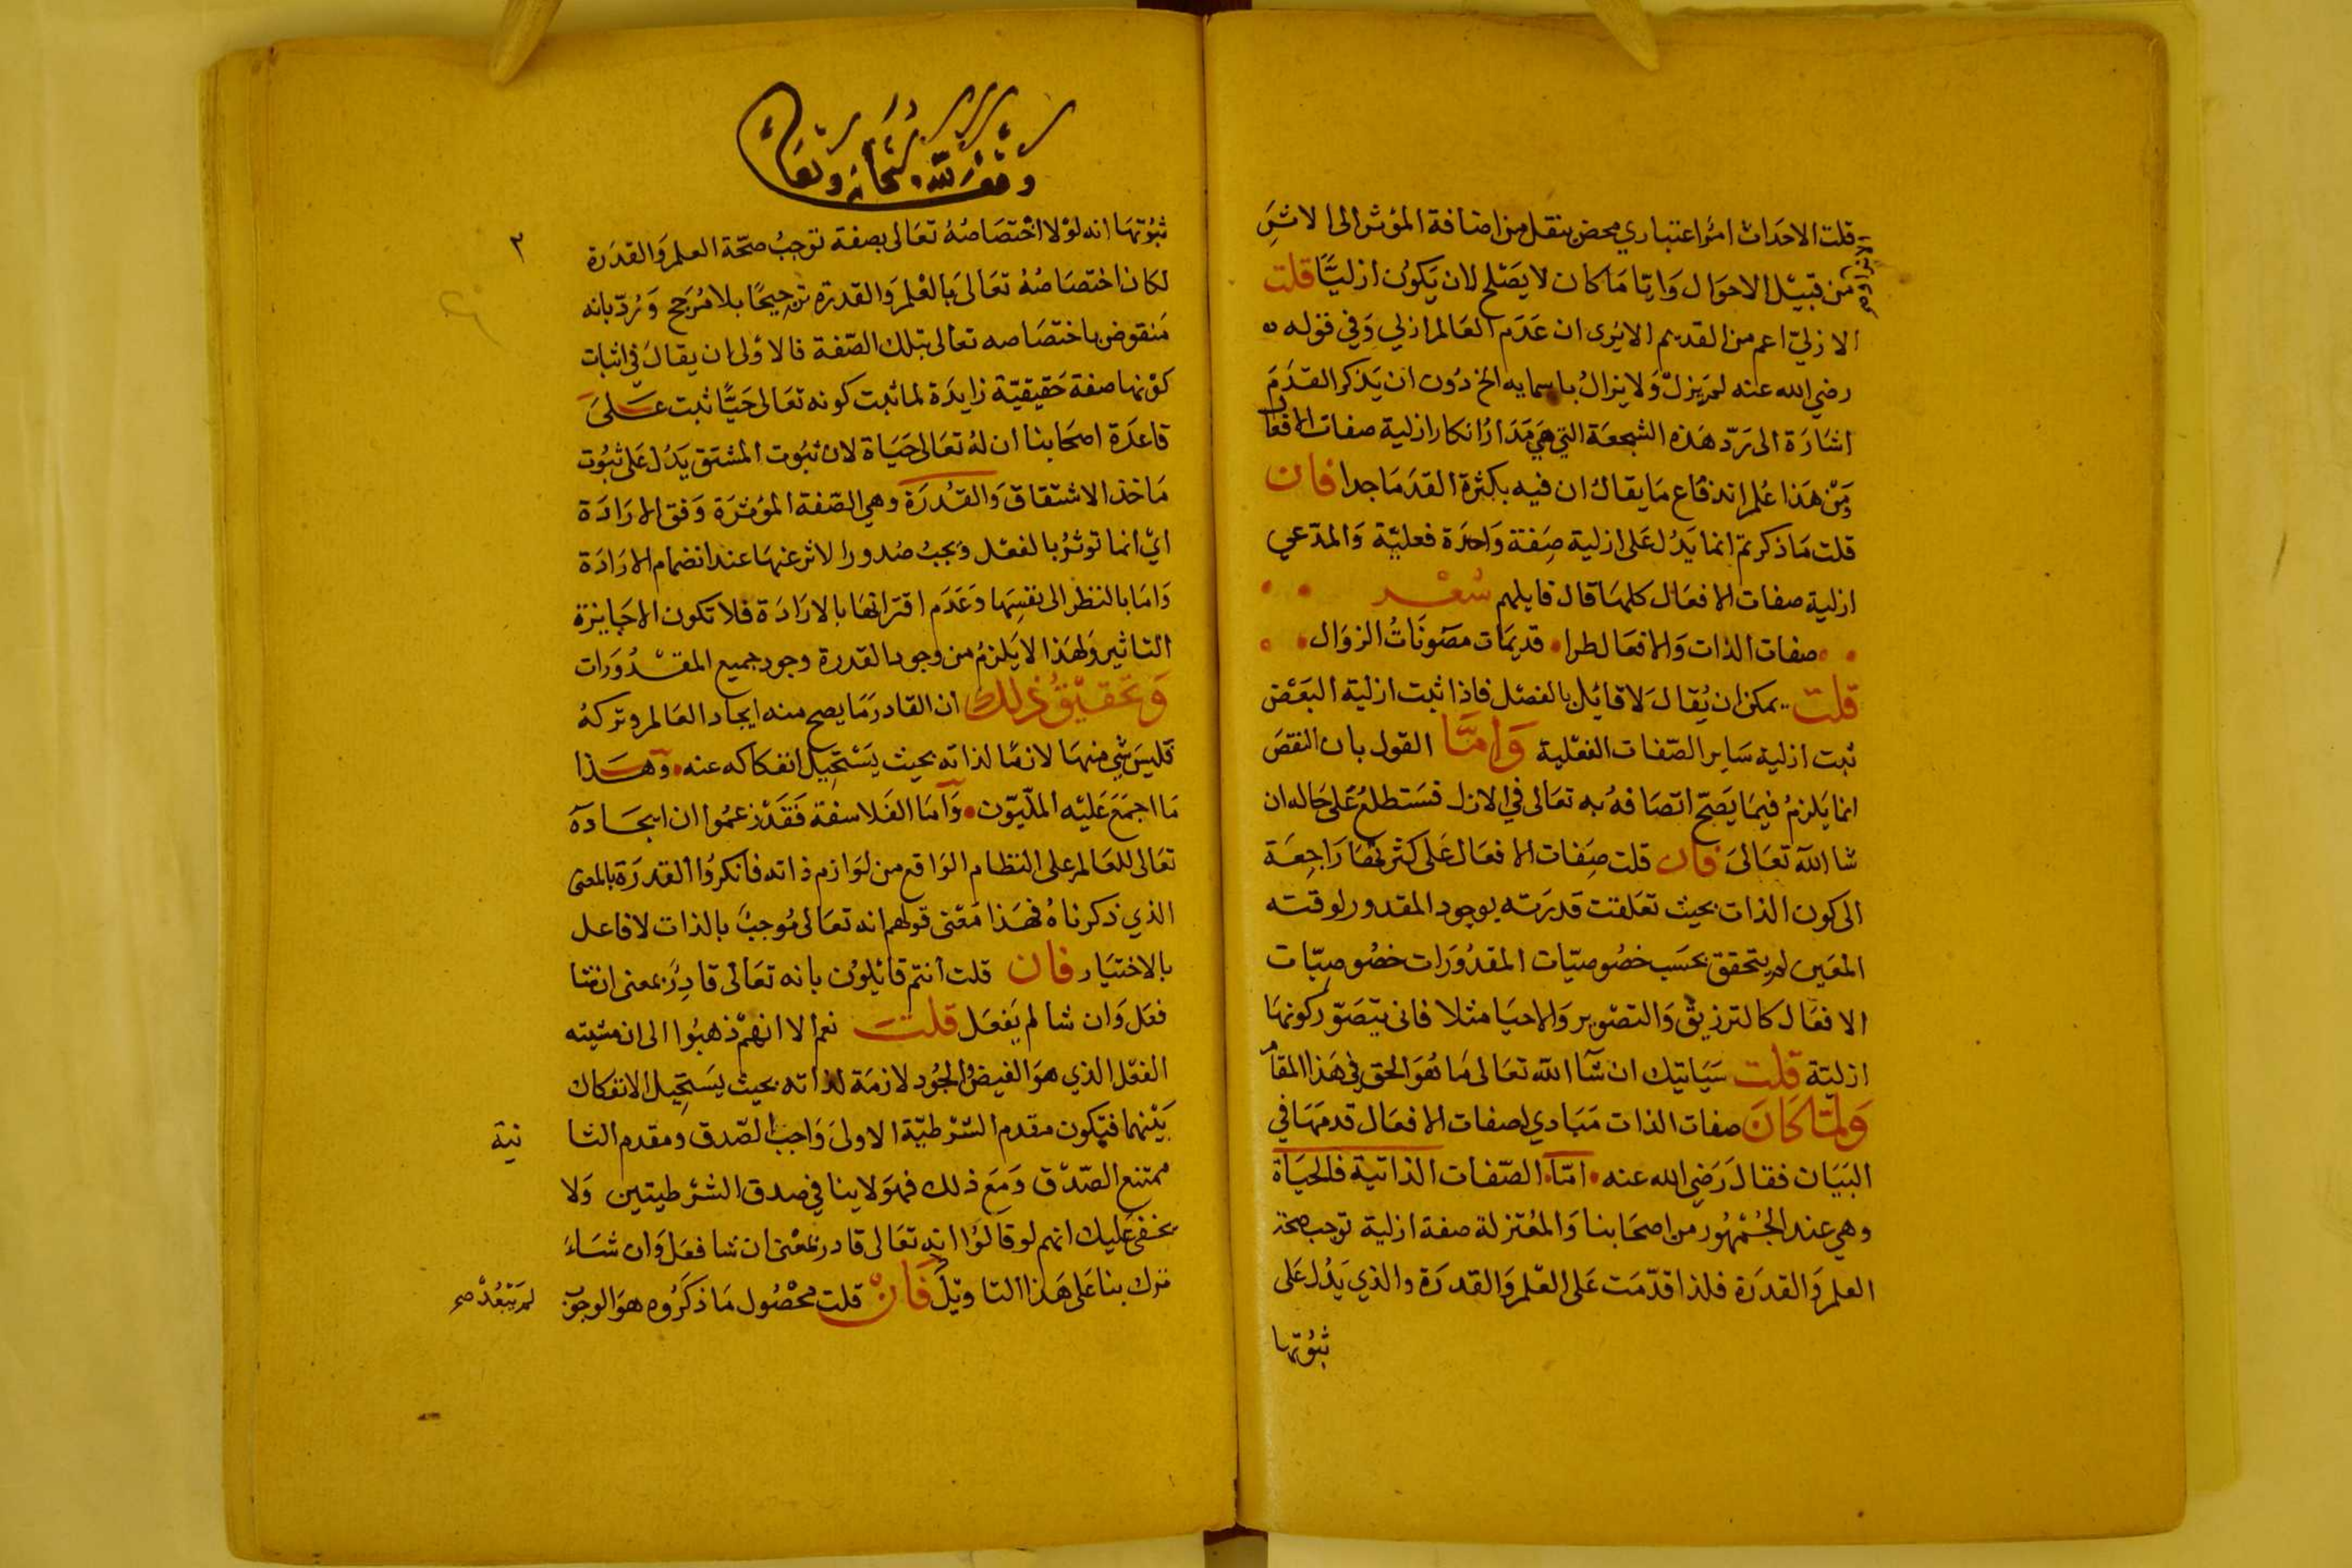 قلت الاحداث امر اعتباري محض ينتقل من اضافة المؤثر الى الاثر
من قبيل الاحوال واياما كان لا يصلح لان يكون ازليًّا قلت
الازلي اعم من القديم الا يرى ان عدم العالم ازلي وفي قوله
رضي الله عنه لم يزل ولا يزال باسمايه الخ دون ان يذكر القدم
اشارة الى رد هذه الشبهة التي هي مدار انكار ازلية صفات الافعال
ومن هذا علم اندفاع ما يقال ان فيه بكثرة القدما جدا فان
قلت ما ذكرتم انما يدل على ازلية صفة واحدة فعلية والمدعي
ازلية صفات الافعال كلها قال قايلهم شعر
صفات الذات والافعال طرا قديمات مصونات الزوال
قلت يمكن ان يقال لا قائل بالفصل فاذا ثبت ازلية البعض
ثبت ازلية ساير الصفات الفعلية واما القول بان النقص
انما يلزم فيما يصح اتصافه به تعالى في الازل فستطلع على حاله ان
شا الله تعالى فان قلت صفات الافعال على كثرتها راجعة
الى كون الذات بحيث تعلقت قدرته بوجود المقدور لوقته
المعين لم يتحقق بحسب خصوصيات المقدورات خصوصيات
الافعال كالترزيق والتصوير والاحيا مثلا فانى يتصور كونها
ازلية قلت سياتيك ان شآ الله تعالى ما هو الحق في هذا المقام
ولما كان صفات الذات مبادي لصفات الافعال قدمها في
البيان فقال رضي الله عنه اما الصفات الذاتية فالحياة
وهي عند الجمهور من اصحابنا والمعتزلة صفة ازلية توجب صحة
العلم والقدرة فلذا قدمت على العلم والقدرة والذي يدل على
ثبوتها
وقف لله سبحانه وتعالى
٢
ثبوتها انه لولا اختصاصه تعالى بصفة توجب صحة العلم والقدرة
لكان اختصاصه تعالى بالعلم والقدرة ترجيحًا بلا مرجح ورد بانه
منقوض باختصاصه تعالى بتلك الصفة فالاولى ان يقال في اثبات
كونها صفة حقيقية زايدة لما ثبت كونه تعالى حيًّا ثبت على
قاعدة اصحابنا ان له تعالى حياة لان ثبوت المشتق يدل على ثبوت
ماخذ الاشتقاق والقدرة وهي الصفة المؤثرة وفق الارادة
اي انما توثر بالفعل ويجب صدور الاثر عنها عند انضمام الارادة
واما بالنظر الى نفسها وعدم اقترانها بالارادة فلا تكون الا جايزة
التاثير ولهذا لا يلزم من وجود القدرة وجود جميع المقدورات
وتحقيق ذلك ان القادر ما يصح منه ايجاد العالم وتركه
فليس شي منها لازمًا لذاته بحيث يستحيل انفكاكه عنه وهذا
ما اجمع عليه المليون واما الفلاسفة فقد زعموا ان ايجاده
تعالى للعالم على النظام الواقع من لوازم ذاته فانكروا القدرة بالمعنى
الذي ذكرناه فهذا معنى قولهم انه تعالى موجب بالذات لا فاعل
بالاختيار فان قلت انتم قائلون بانه تعالى قادر بمعنى ان شا
فعل وان شا لم يفعل قلت نعم الا انهم ذهبوا الى ان مشيته
الفعل الذي هو الفيض والجود لازمة لذاته بحيث يستحيل الانفكاك
بينهما فيكون مقدم الشرطية الاولى واجب الصدق ومقدم الثا نية
ممتنع الصدق ومع ذلك فهو لا ينافي صدق الشرطيتين ولا
يخفى عليك انهم لو قالوا انه تعالى قادر بمعنى ان شا فعل وان شاء
ترك بنا على هذا التاويل لم يبعد صح فان قلت محصول ما ذكروه هو الوجوب